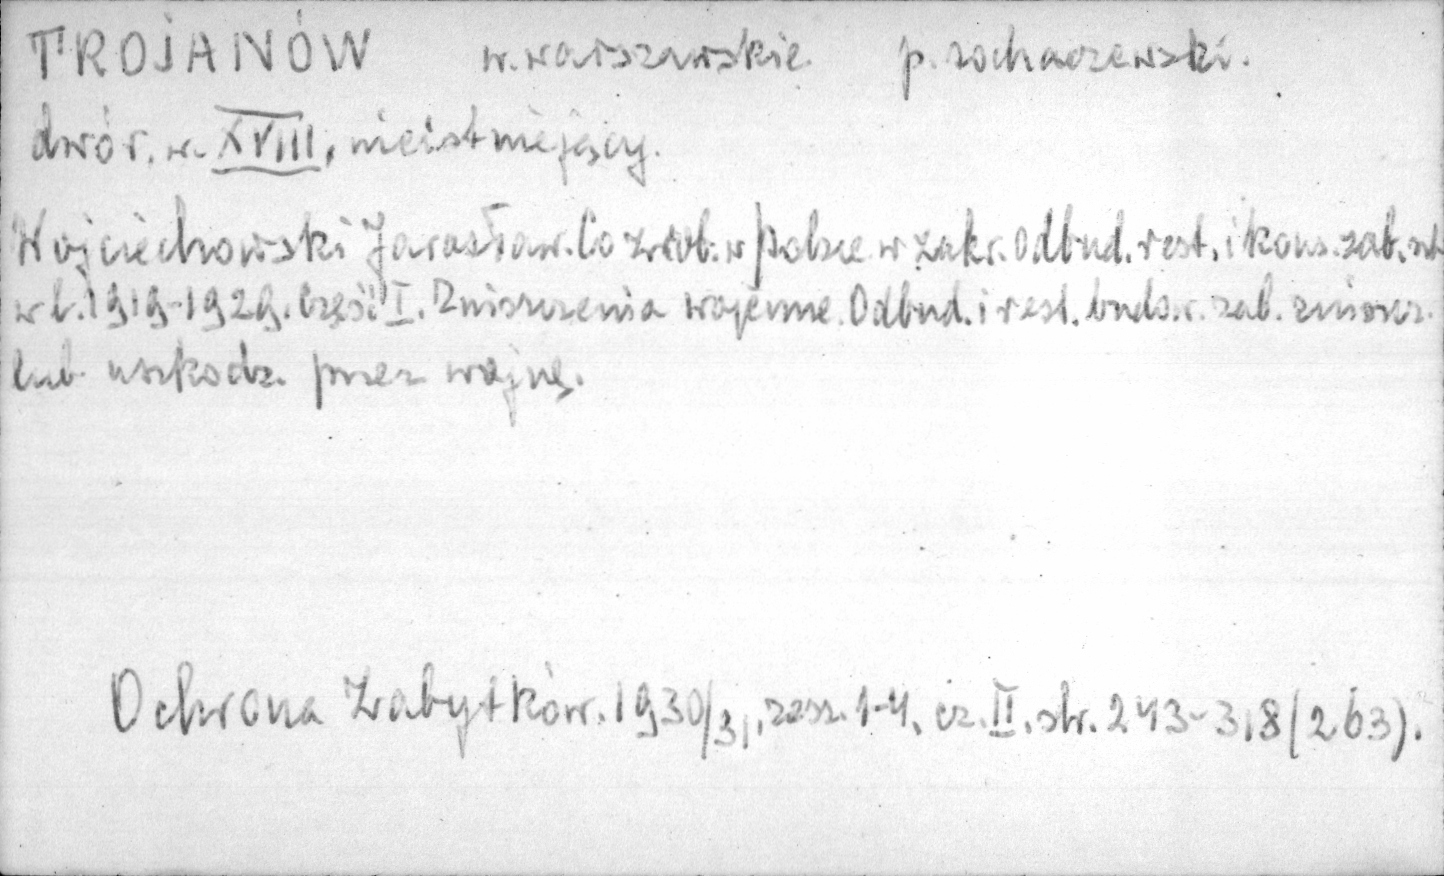 TROJANÓW w. warszawskie p. sochaczewski.
dwór. w. XVIII, nieistniejący.
Wojciechowski Jarosław. Co zrob. w Polsce w zakr. Odbud. rest. i kons. zab. szt
w l. 1919-1929. Część I. Zniszczenia wojenne. Odbud. i rest. budow. zab. zniszcz.
lub uszkodz. przez wojnę.
Ochrona Zabytków. 1930/31, zesz. 1-4, cz. II. str. 243-318 (263).